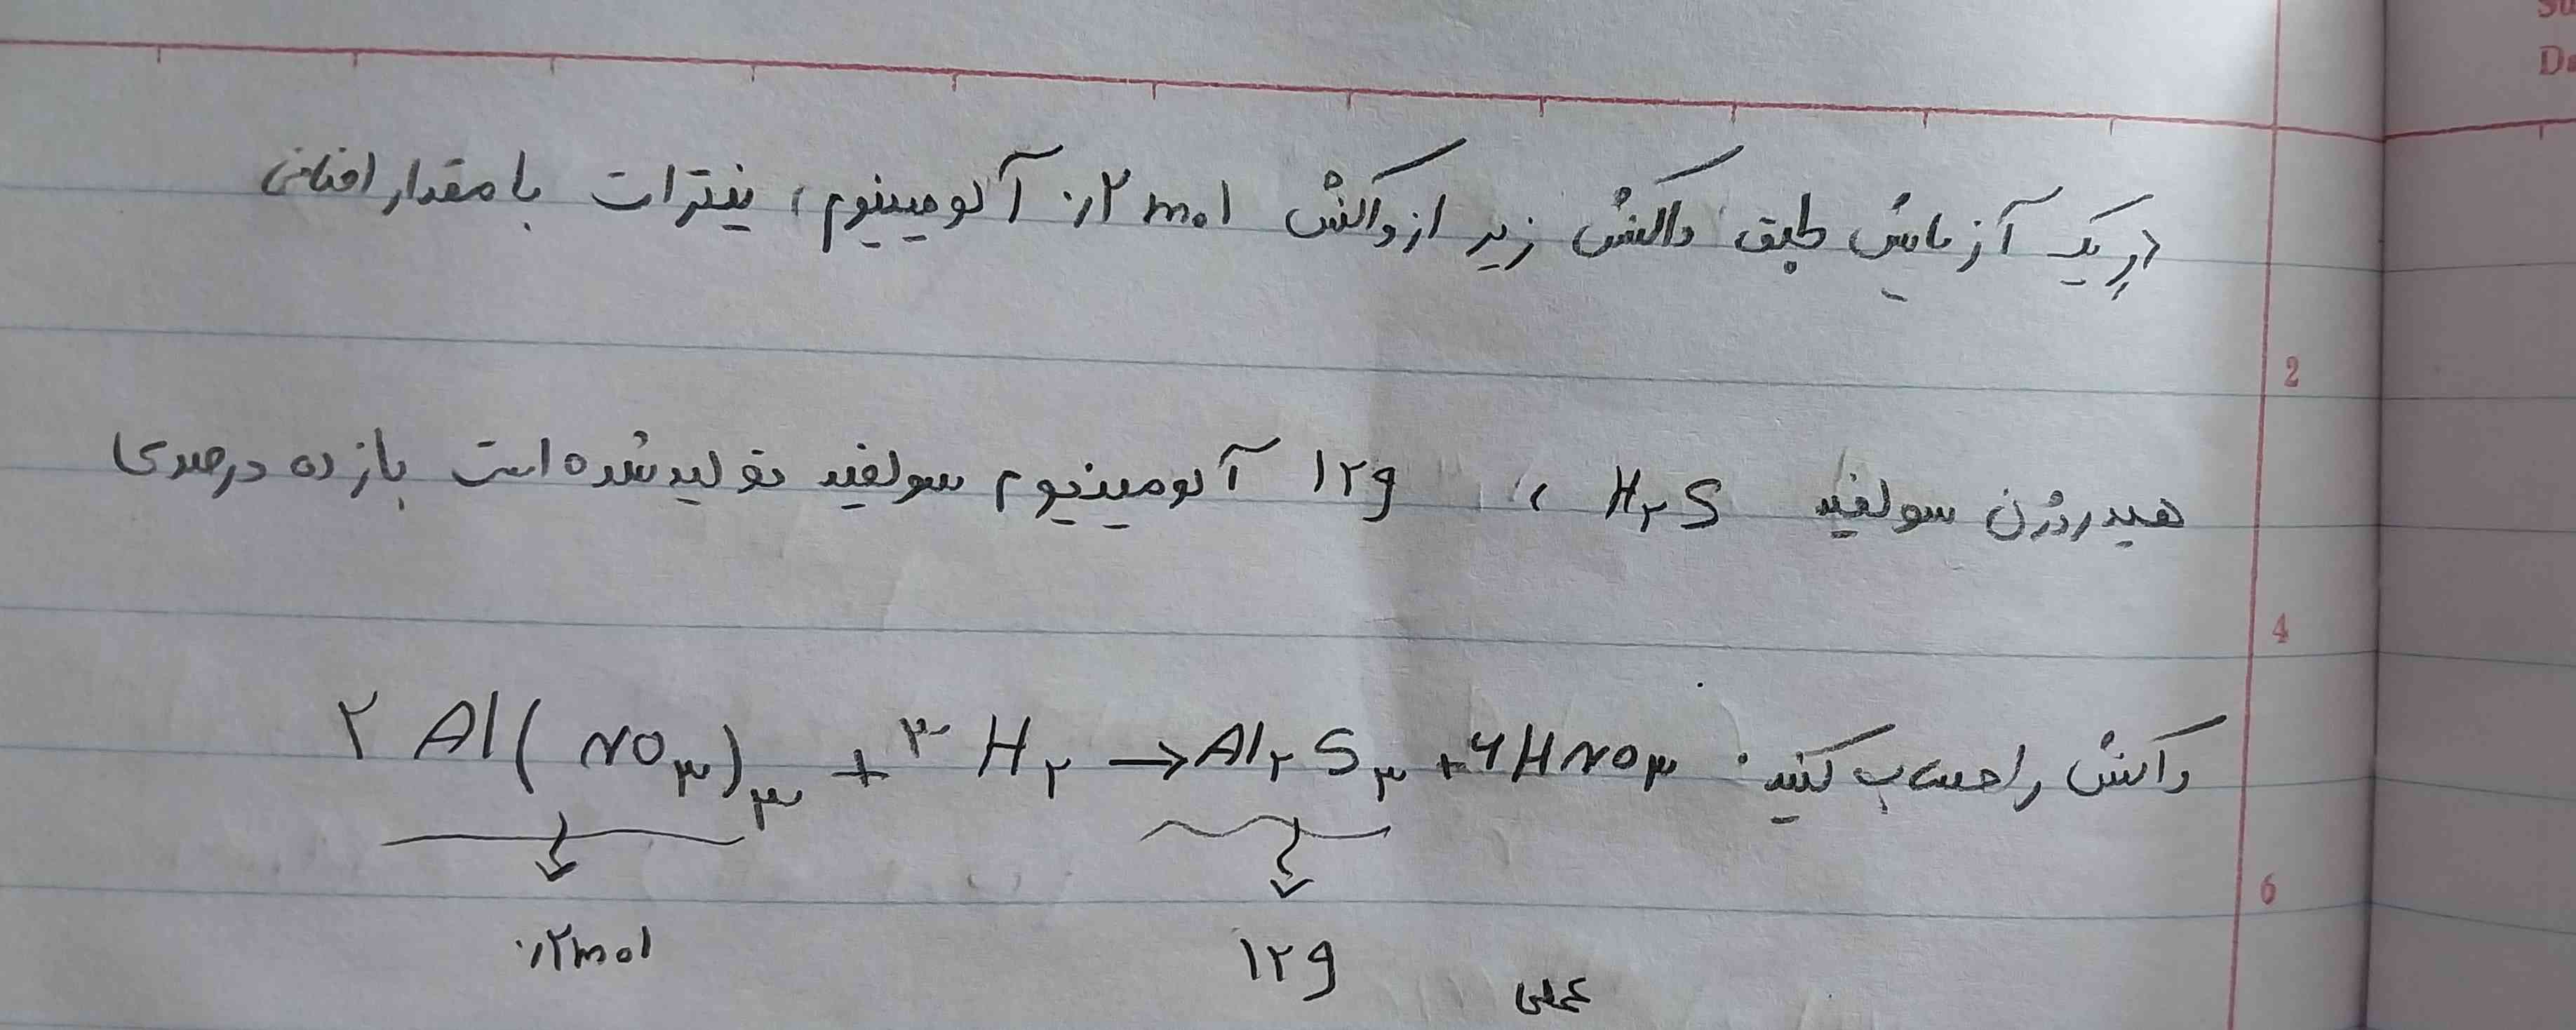 در یک آزمایش طبق واکنش زیر از واکنش ۰/۲ mol آلومینیوم، نیترات با مقدار اضافی
هیدروژن سولفید H۲S ، ۱۲g آلومینیوم سولفید تولید شده است بازده درصدی
واکنش را حساب کنید.
۲ Al(NO۳)۳ + ۳ H۲ → Al۲S۳ + ۶HNO۳
۰/۲mol ۱۲g عملی
2
4
6